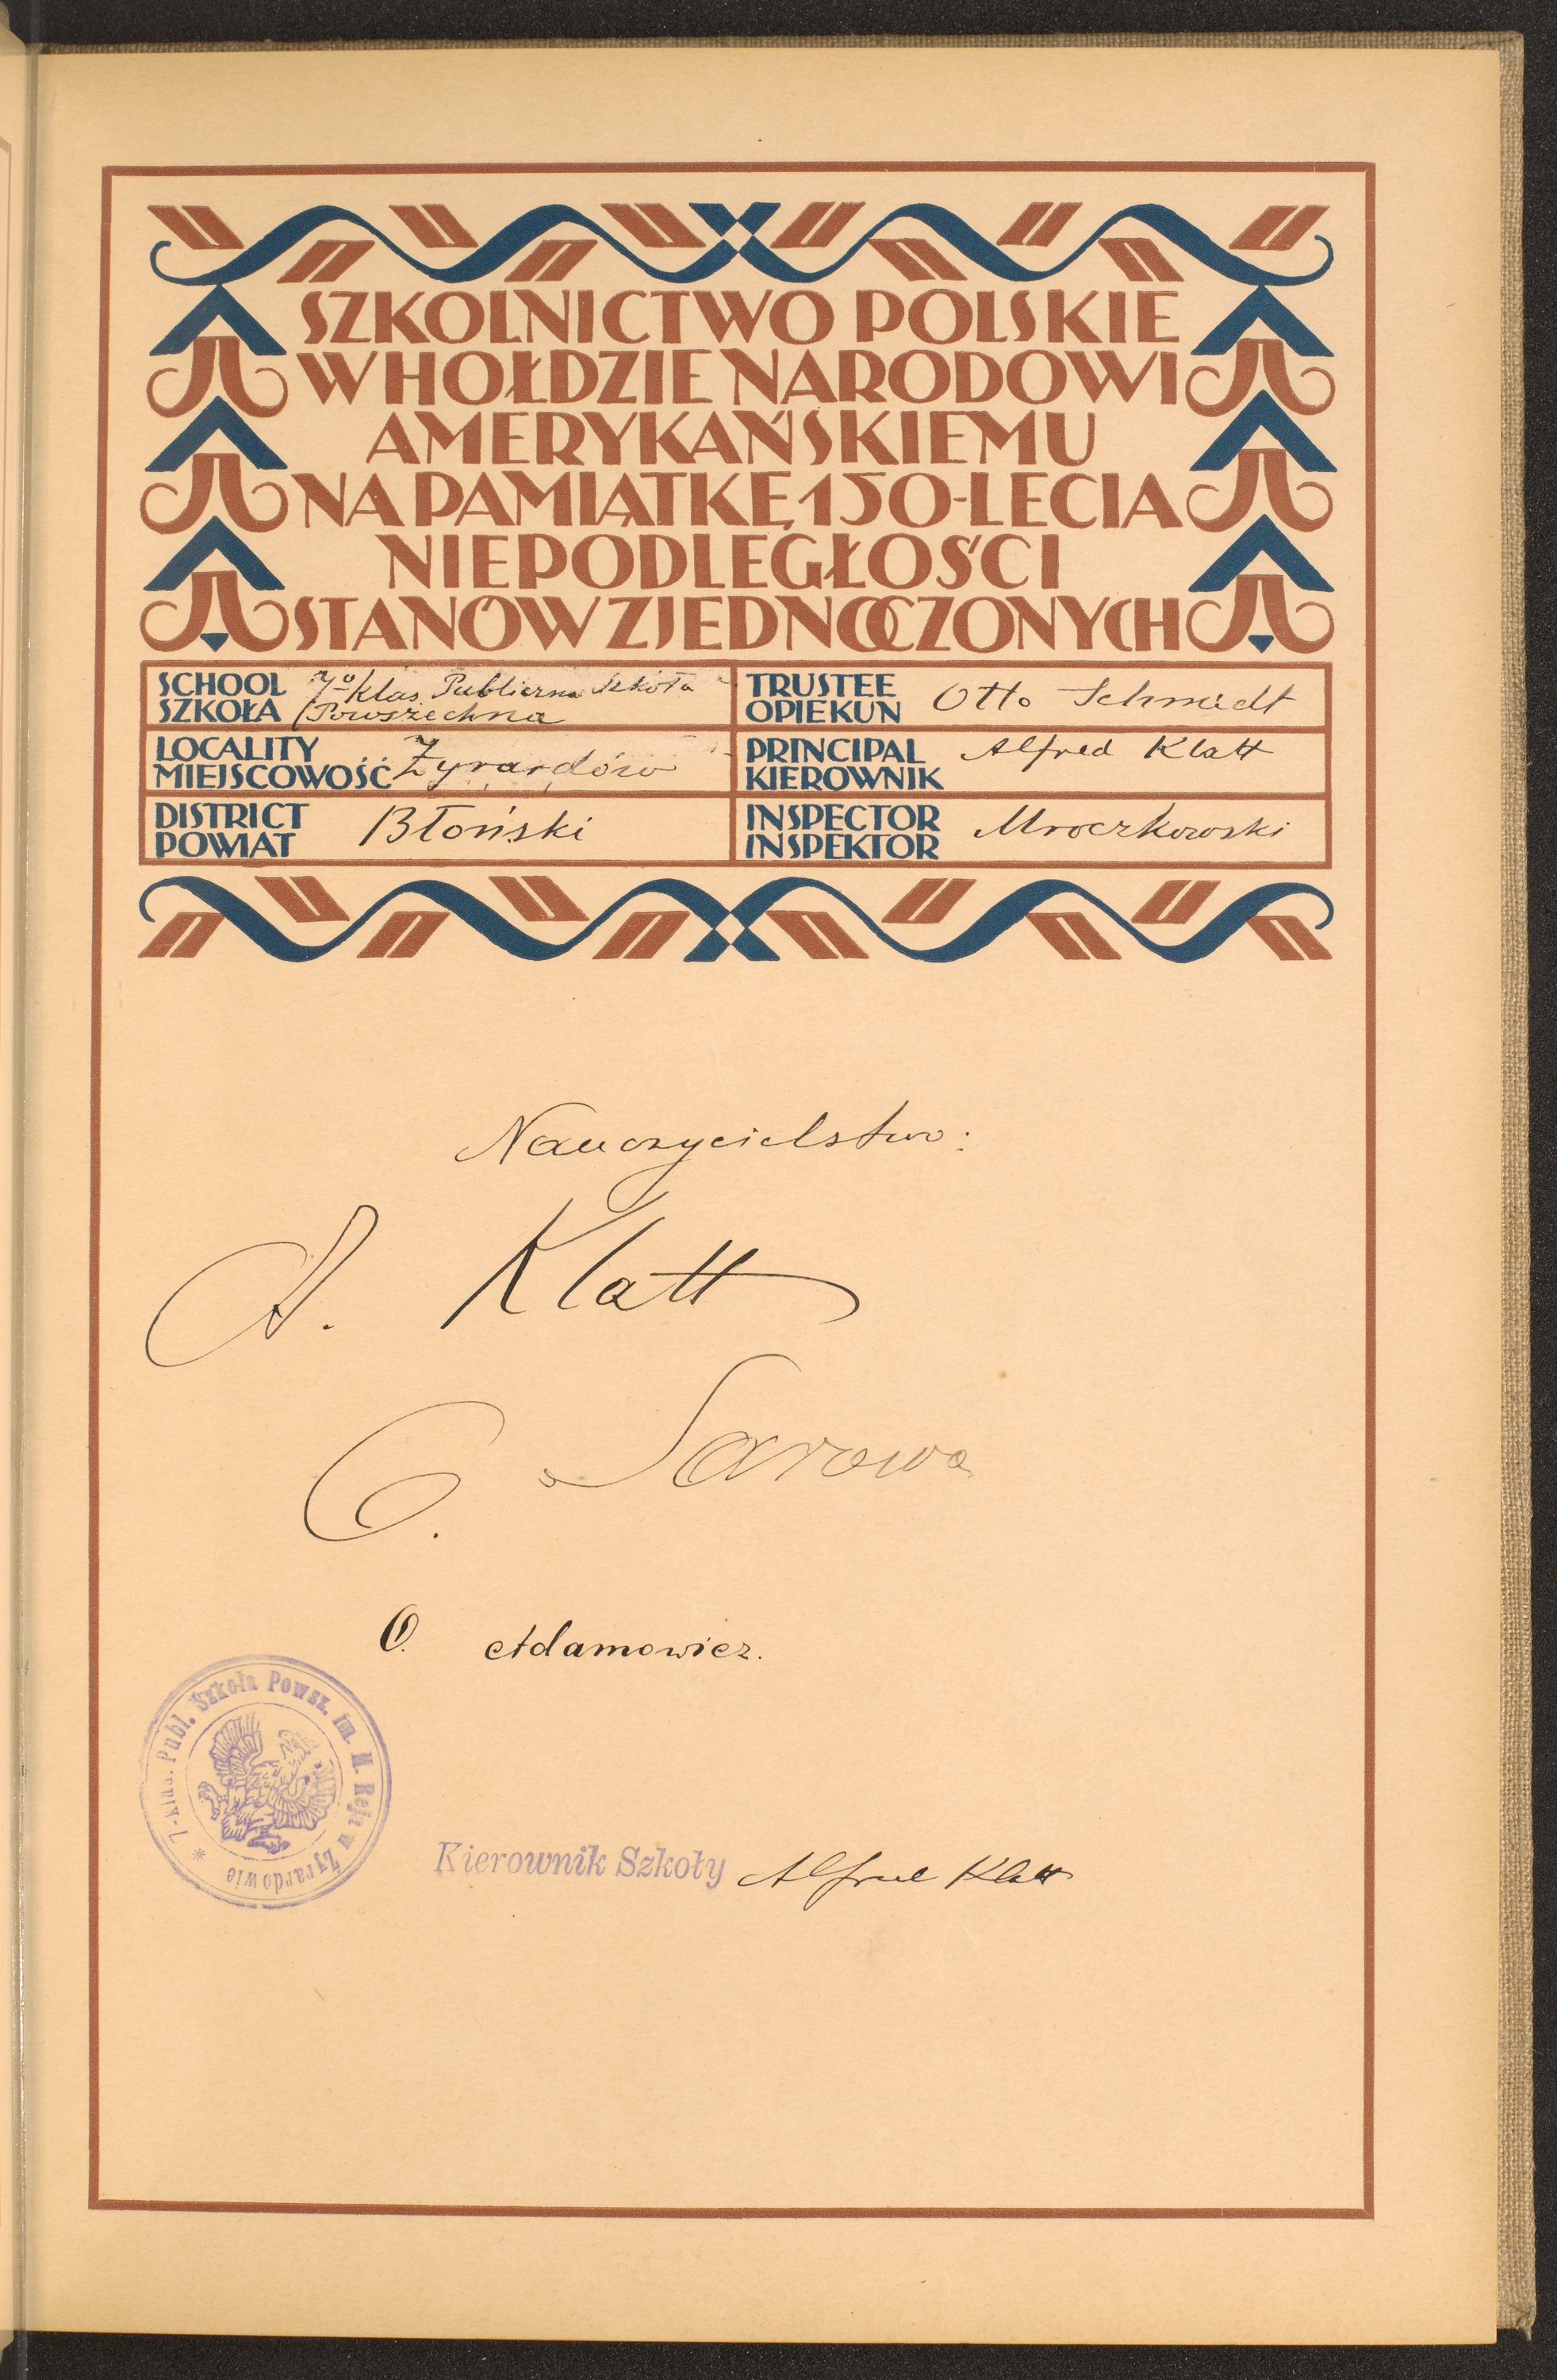 SZKOLNICTWO POLSKIE
W HOŁDZIE NARODOWI
AMERYKAŃSKIEMU
NA PAMIĄTKĘ 150-LECIA
NIEPODLEGŁOŚCI
STANÓW ZJEDNOCZONYCH
SCHOOL
SZKOŁA
7º Klas. Publiczna Szkoła
Powszechna
TRUSTEE
OPIEKUN
Otto Schmidt
LOCALITY
MIEJSCOWOŚĆ
Żyrardów
PRINCIPAL
KIEROWNIK
Alfred Klatt
DISTRICT
POWIAT
Błoński
INSPECTOR
INSPEKTOR
Mroczkowski
Nauczycielstwo:
A. Klatt
Sarowa
O. Adamowicz.
7-klas. Publ. Szkoła Powsz. im. M. Reja w Żyrardowie *
Kierownik Szkoły Alfred Klatt